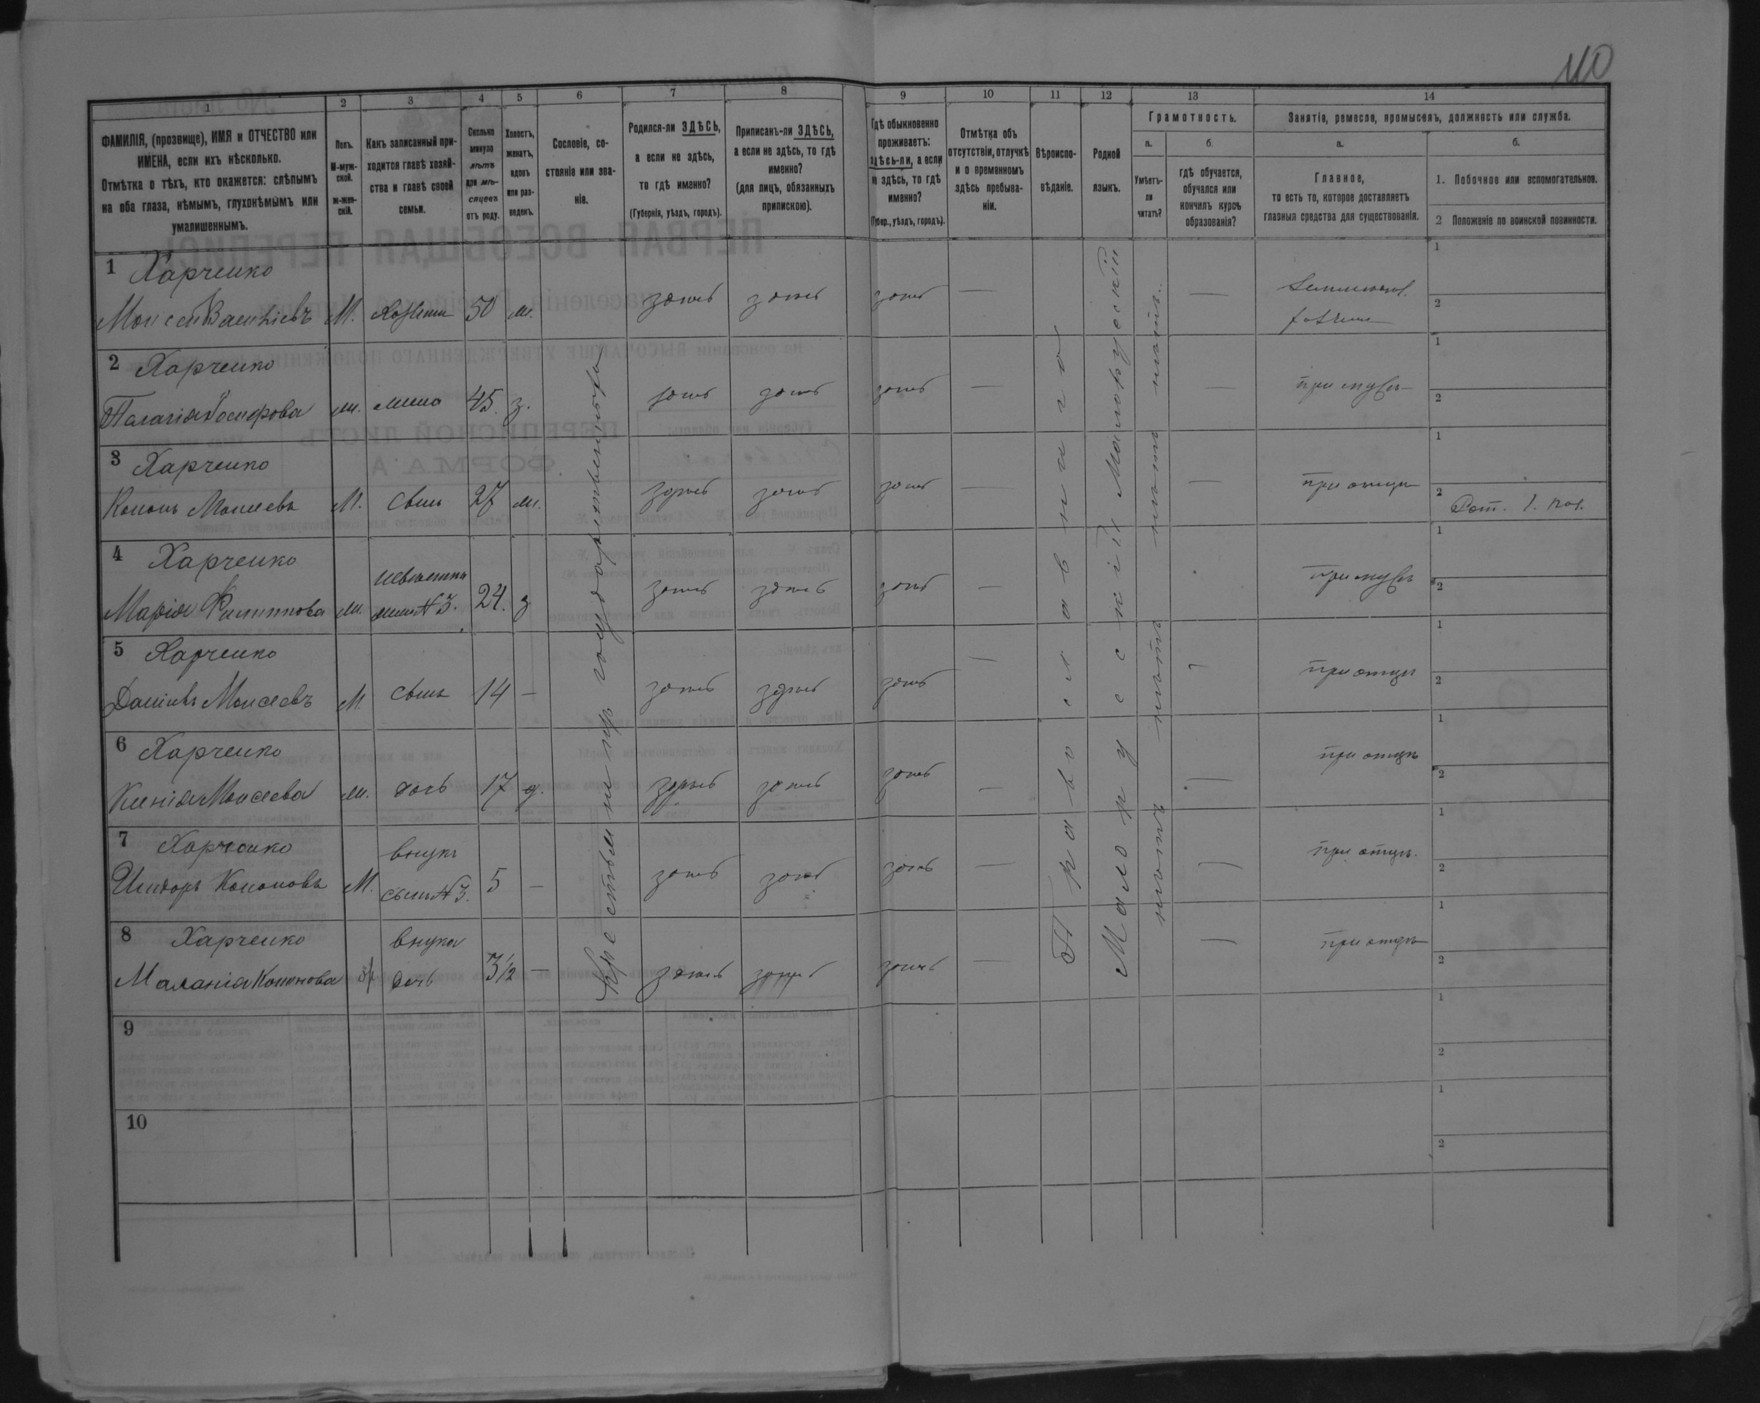 110
1 2 3 4 5 6 7 8 9 10 11 12 13 14
ФАМИЛІЯ, (прозвище), ИМЯ и ОТЧЕСТВО или ИМЕНА, если ихъ нѣсколько.
Отмѣтка о тѣхъ, кто окажется: слѣпымъ на оба глаза, нѣмымъ, глухонѣмымъ или умалишеннымъ.
Полъ. М-мужской. ж-женскій.
Какъ записанный приходится главѣ хозяйства и главѣ своей семьи.
Сколько минуло лѣтъ или мѣсяцевъ отъ роду.
Холостъ, женатъ, вдовъ или разведенъ.
Сословіе, состояніе или званіе.
Родился-ли ЗДѢСЬ, а если не здѣсь, то гдѣ именно?
(Губернія, уѣздъ, городъ).
Приписанъ-ли ЗДѢСЬ, а если не здѣсь, то гдѣ именно?
(для лицъ, обязанныхъ припискою).
Гдѣ обыкновенно проживаетъ: здѣсь-ли, а если не здѣсь, то гдѣ именно?
(Губер., уѣздъ, городъ).
Отмѣтка объ отсутствіи, отлучкѣ и о временномъ здѣсь пребываніи.
Вѣроисповѣданіе.
Родной языкъ.
Грамотность.
а. Умѣетъ-ли читать?
б. гдѣ обучается, обучался или кончилъ курсъ образованія?
Занятія, ремесло, промыселъ, должность или служба.
а. Главное, то есть то, которое доставляетъ главныя средства для существованія.
б.
1. Побочное или вспомогательное.
2 Положеніе по воинской повинности.
1 Харченко
Моисей Васильевъ М. хозяинъ 50 ж. здѣсь здѣсь здѣсь —
2 Харченко
Палагія Іосифова ж. жена 45. з. здѣсь здѣсь здѣсь — при мужѣ
3 Харченко
Кононъ Моисеевъ М. сынъ 27 ж. здѣсь здѣсь здѣсь — при отцѣ
4 Харченко
Марія Филиппова ж. невѣстка жена №3. 24. з здѣсь здѣсь здѣсь — при мужѣ
5 Харченко
Даніилъ Моисеевъ М. сынъ 14 — здѣсь здѣсь здѣсь — при отцѣ
6 Харченко
Ксенія Моисеева ж. дочь 17 д. здѣсь здѣсь здѣсь — при отцѣ
7 Харченко
Исидоръ Кононовъ М. внукъ сынъ №3. 5 — здѣсь здѣсь здѣсь — при отцѣ.
8 Харченко
Маланія Кононова внука дочь 3½ — здѣсь здѣсь здѣсь — при отцѣ
9
10
Православнаго
Малорусскій Малорусскій
нѣтъ нѣтъ нѣтъ нѣтъ